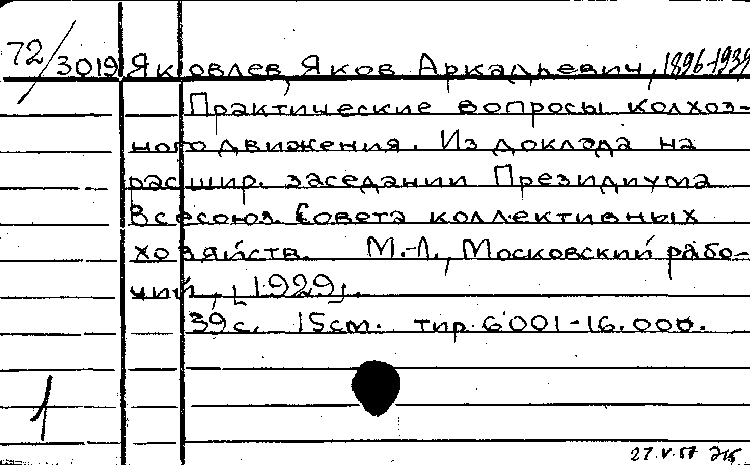 72/3019 Яковлев, Яков Аркадьевич, 1896-1939
Практические вопросы колхоз-
ного движения. Из доклада на
расшир. заседании Президиума
Всесоюз. Совета коллективных
хозяйств. М.-Л., Московский рабо-
чий, [1929].
39 с. 15 см. тир. 6001-16.000.
1
27.V.57